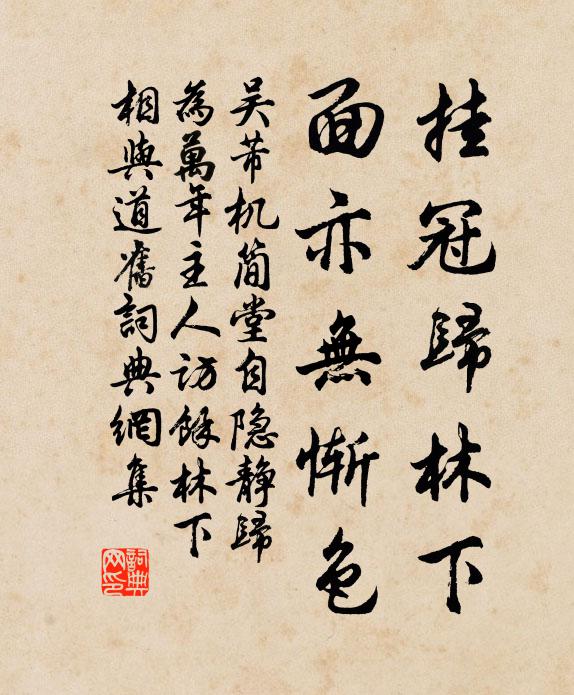 挂冠歸林下
面亦無慚色
吴芾机简堂自隐静歸
為萬年主人访馀林下
相與道舊詞典網集
詞典
网印